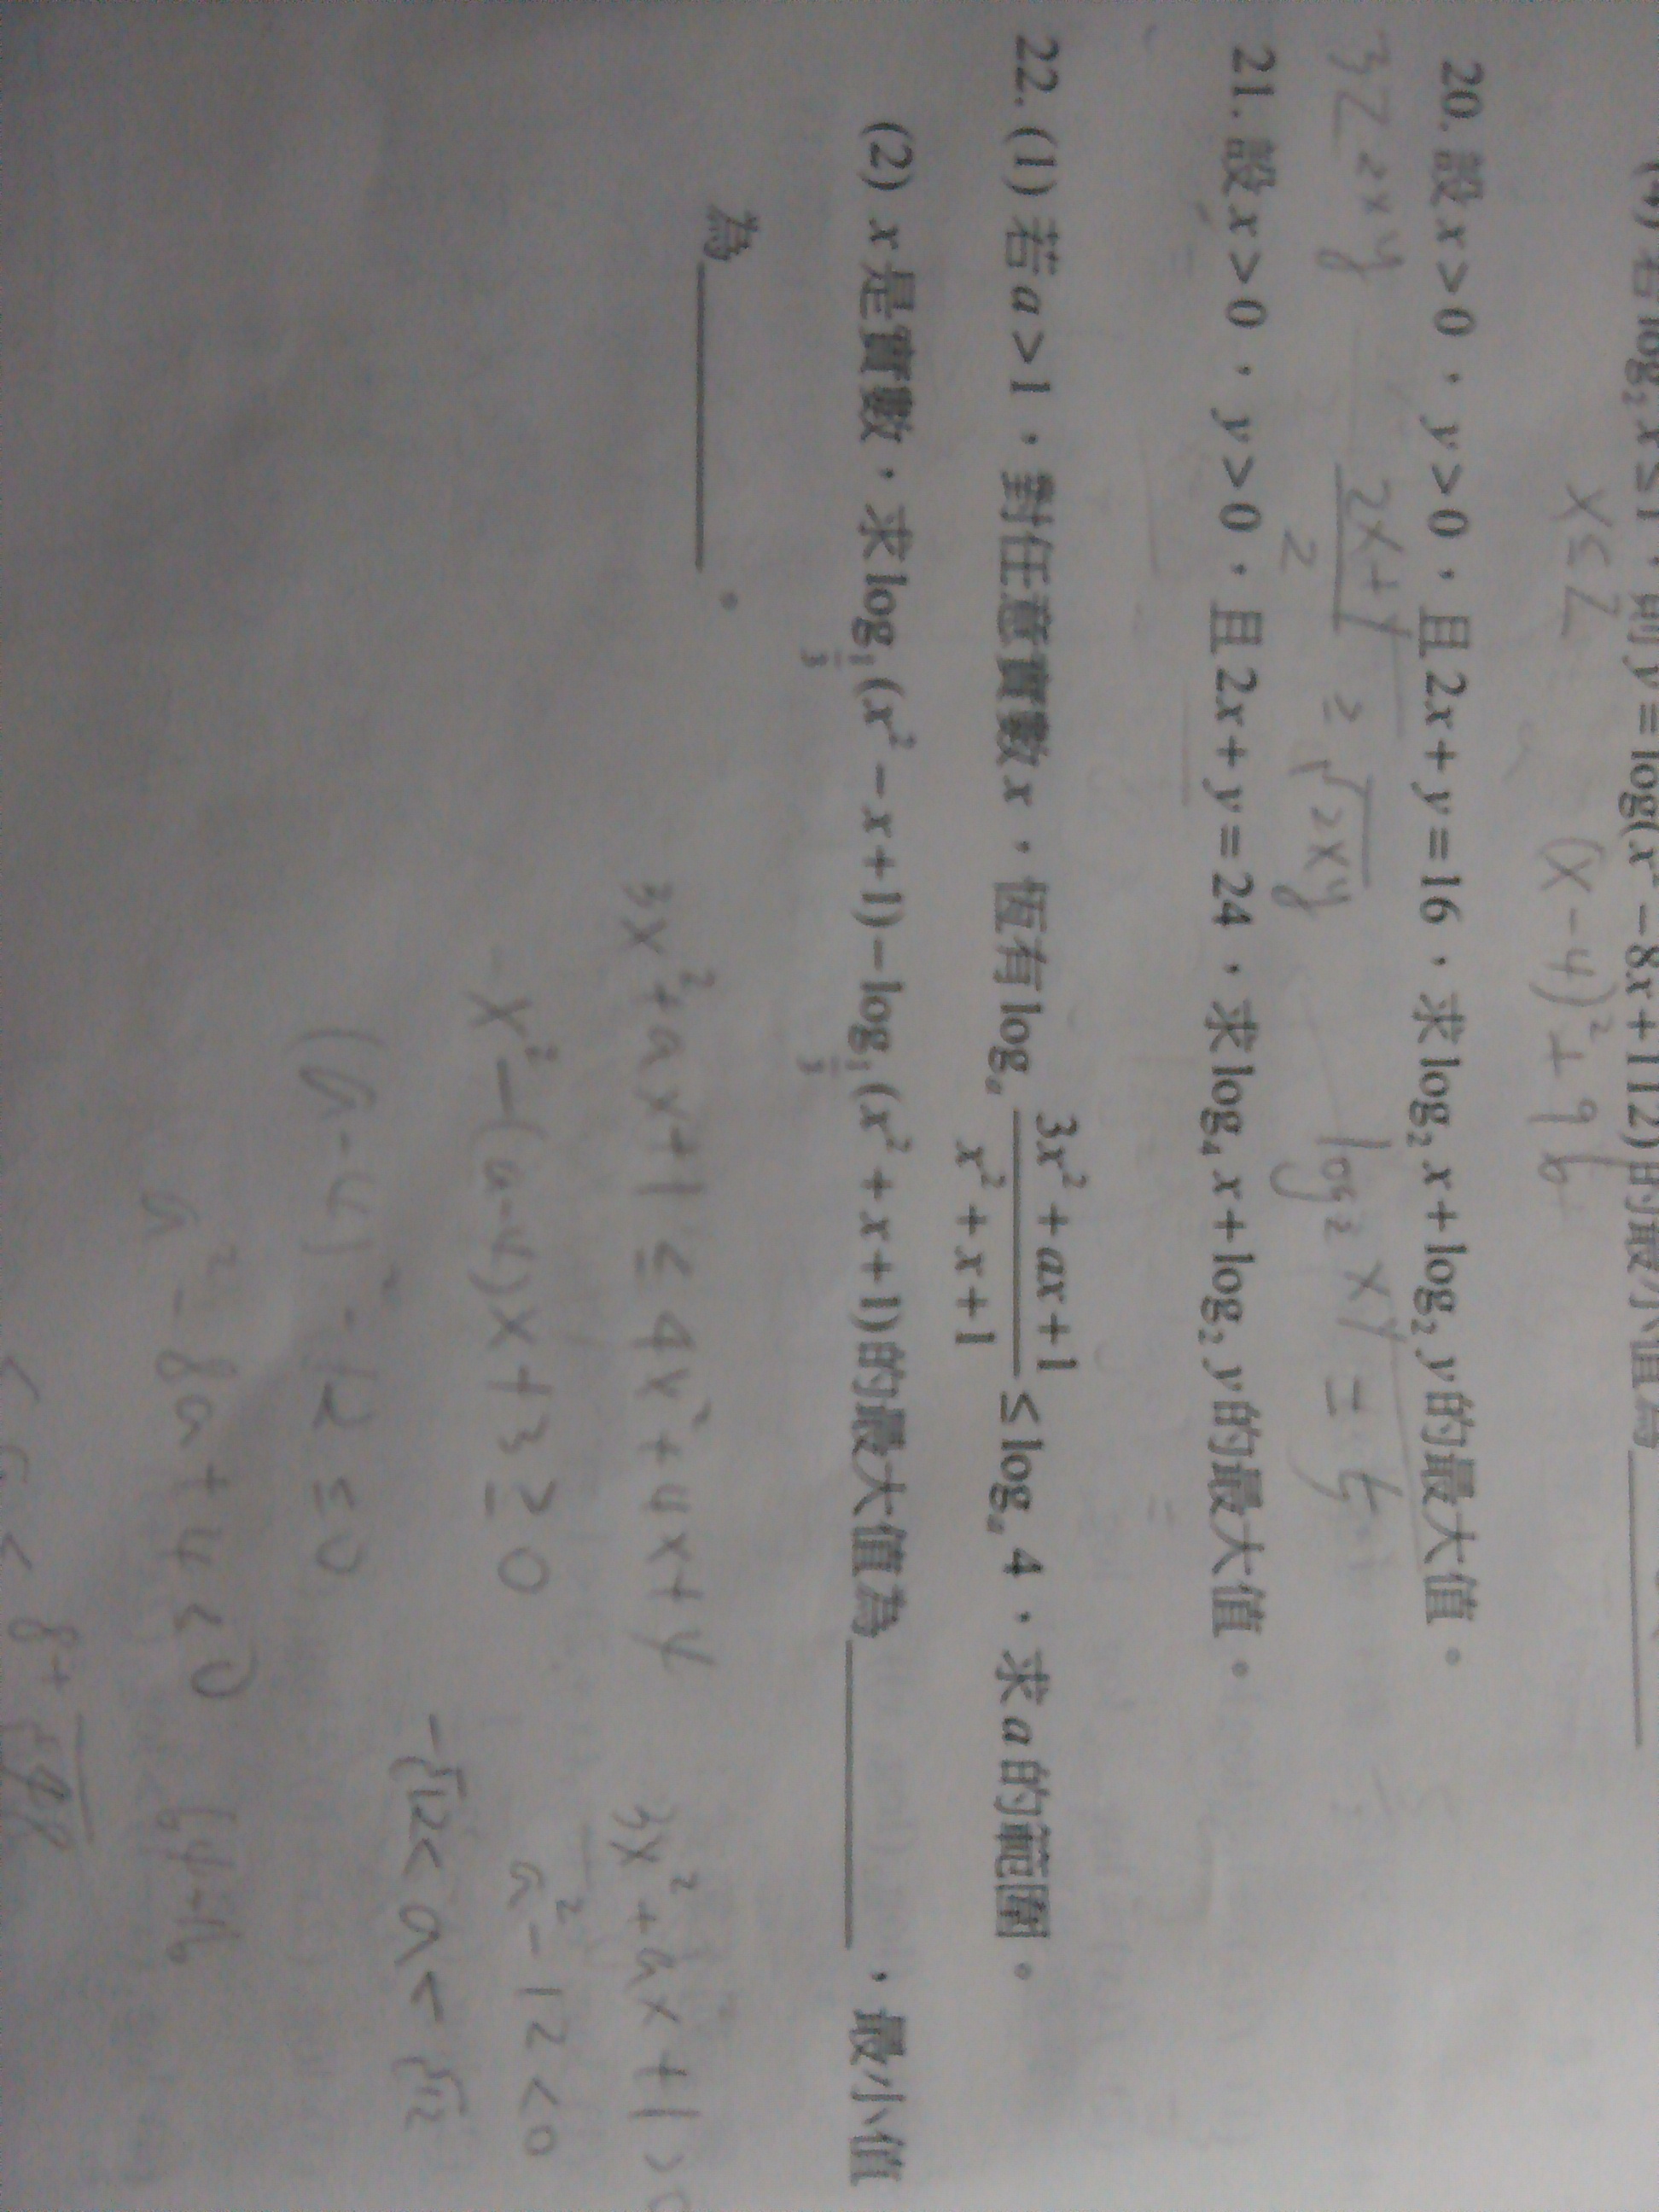 (4) 若 log₂ x ≤ 1，則 y = log(x² − 8x + 112) 的最小值為
x ≤ 2 (x-4)² + 96
20. 設 x > 0，y > 0，且 2x + y = 16，求 log₂ x + log₂ y 的最大值。
32 ≥ xy
2x+y / 2 ≥ √2xy
log₂ xy =
21. 設 x > 0，y > 0，且 2x + y = 24，求 log₄ x + log₂ y 的最大值。
22. (1) 若 a > 1，對任意實數 x，恆有 logₐ (3x² + ax + 1)/(x² + x + 1) ≤ logₐ 4，求 a 的範圍。
(2) x 是實數，求 log_{1/3} (x² − x + 1) − log_{1/3} (x² + x + 1) 的最大值為________，最小值
為________。
3x² + ax + 1 ≤ 4x² + 4x + 4
3x² + ax + 1 > 0
x² − (a-4)x + 3 ≥ 0
a² − 12 < 0
(a-4)² − 12 ≤ 0
−√12 < a < √12
a² − 8a + 4 ≤ 0
64-16
8+√48